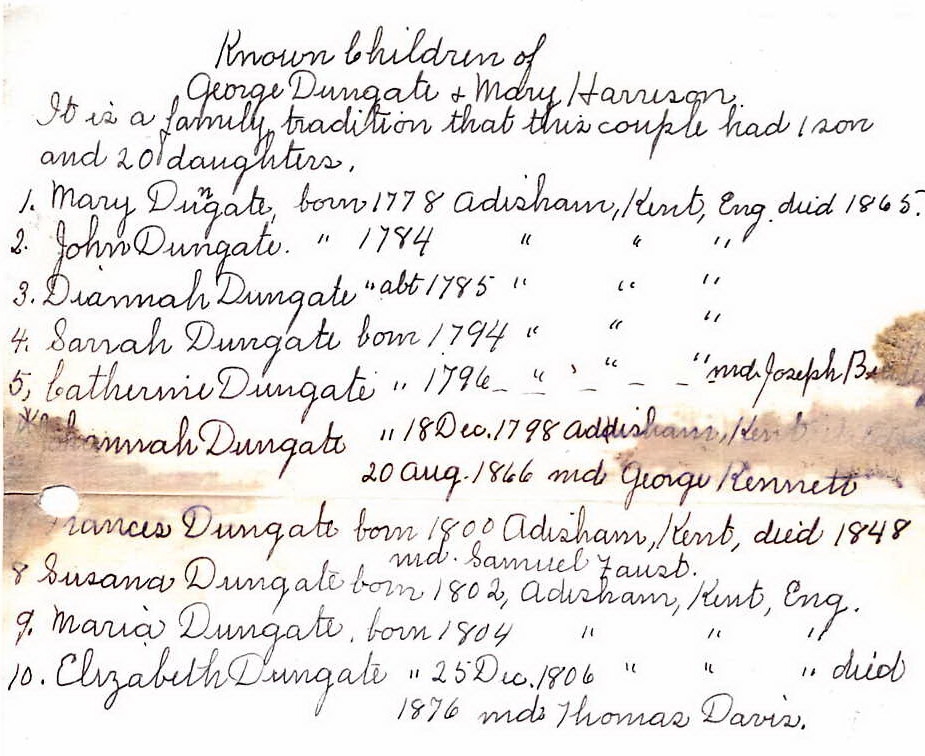 Known Children of
George Dungate & Mary Harrison
It is a family tradition that this couple had 1 son
and 20 daughters.
1. Mary Dungate, born 1778 Adisham, Kent, Eng. died 1865.
2. John Dungate. " 1784 " " "
3. Diannah Dungate " abt 1785 " " "
4. Sarrah Dungate born 1794 " " "
5, Catherine Dungate " 1796 " " " md. Joseph
Dungate " 18 Dec. 1798 Addisham, Kent
20 Aug. 1866 md George Kennett
Frances Dungate born 1800 Adisham, Kent, died 1848
md. Samuel Faust.
8 Susana Dungate born 1802, Adisham, Kent, Eng.
9. Maria Dungate, born 1804 " " "
10. Elizabeth Dungate " 25 Dec. 1806 " " " died
1876 md. Thomas Davis.